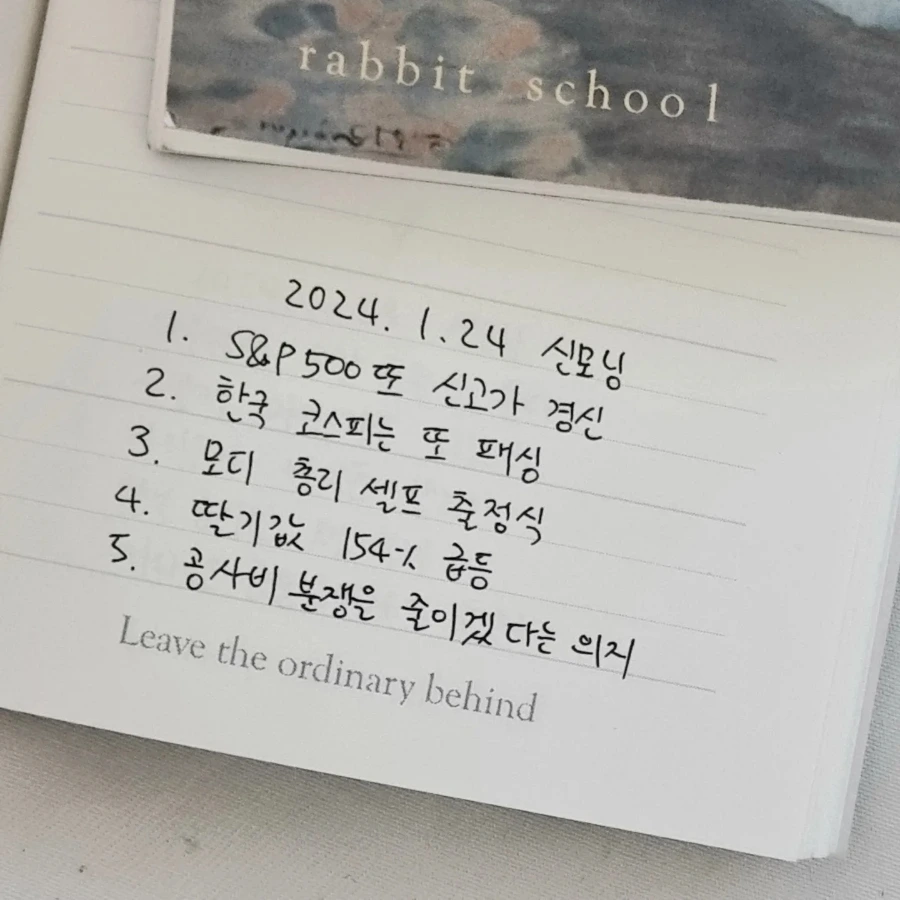 rabbit school
2024. 1.24 신모닝
1. S&P 500 또 신고가 경신
2. 한국 코스피는 또 패싱
3. 모디 총리 셀프 출정식
4. 딸기값 154% 급등
5. 공사비 분쟁을 줄이겠다는 의지
Leave the ordinary behind